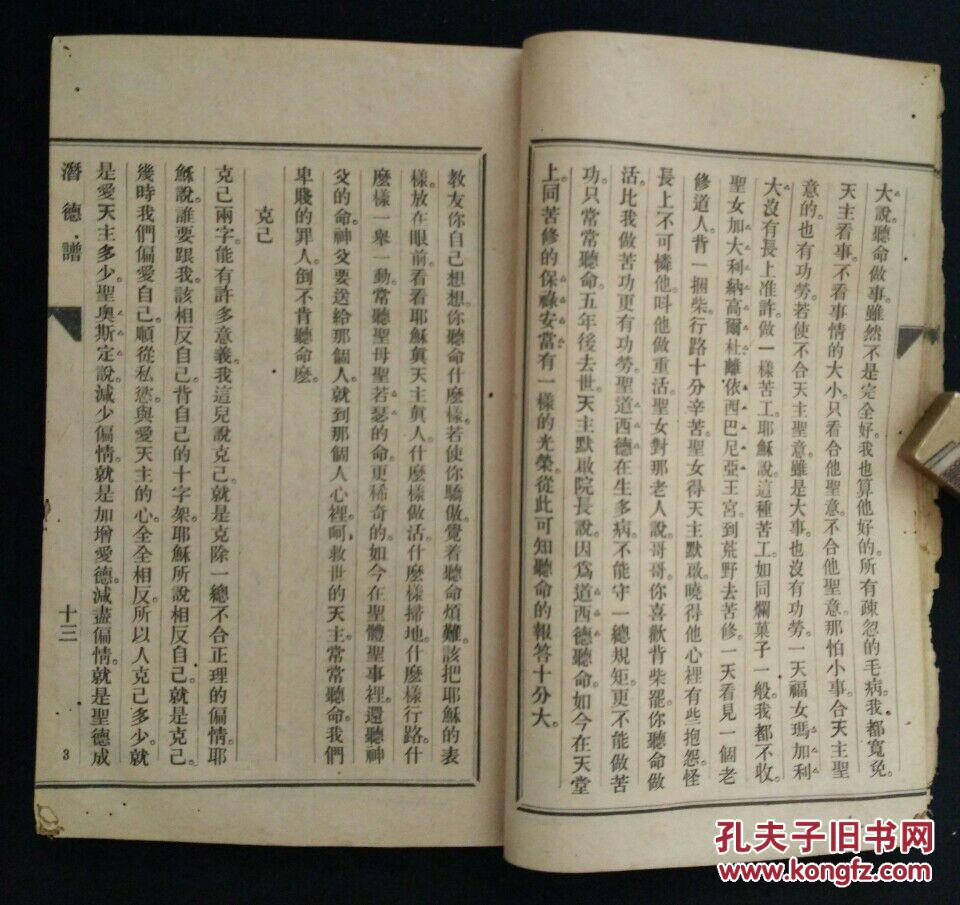 大說。聽命做事。雖然不是完全好。我也算他好的。所有疎忽的毛病。我都寬免。
天主看事。不看事情的大小。只看合他聖意。不合他聖意。那怕小事。合天主聖
意的。也有功勞。若使不合天主聖意。雖是大事。也沒有功勞。一天福女瑪加利
大沒有長上准許。做一樣苦工。耶穌說。這種苦工。如同爛菓子一般。我都不收。
聖女加大利納高爾杜離依西巴尼亞王宮。到荒野去苦修。一天看見一個老
修道人。背一捆柴。行路十分辛苦。聖女得天主默啟。曉得他心裡有些抱怨。怪
長上不可憐他。呌他做重活。聖女對那老人說。哥哥。你喜歡背柴罷。你聽命做
活。比我做苦功。更有功勞。聖道西德在生多病。不能守一總規矩。更不能做苦
功。只常常聽命。五年後去世。天主默啟院長說。因爲道西德聽命。如今在天堂
上。同苦修的保祿安當。有一樣的光榮。從此可知聽命的報答十分大。
教友你自己想想。你聽命什麼樣。若使你驕傲。覺着聽命煩難。該把耶穌的表
樣。放在眼前。看看耶穌眞天主眞人。什麼樣做活。什麼樣掃地。什麼樣行路。什
麼樣一舉一動。常聽聖母聖若瑟的命。更稀奇的。如今在聖體聖事裡。還聽神
父的命。神父要送給那個人。就到那個人心裡。呵。救世的天主。常常聽命。我們
卑賤的罪人。倒不肯聽命麼。
克己
克己兩字。能有許多意義。我這兒說克己。就是克除一總不合正理的偏情。耶
穌說。誰要跟我。該相反自己。背自己的十字架。耶穌所說相反自己。就是克己。
幾時我們偏愛自己。順從私慾。與愛天主的心。全全相反。所以人克己多少。就
是愛天主多少。聖奧斯定說。減少偏情。就是加增愛德。減盡偏情。就是聖德成
潛德譜
十三
3
孔夫子旧书网
www.kongfz.com